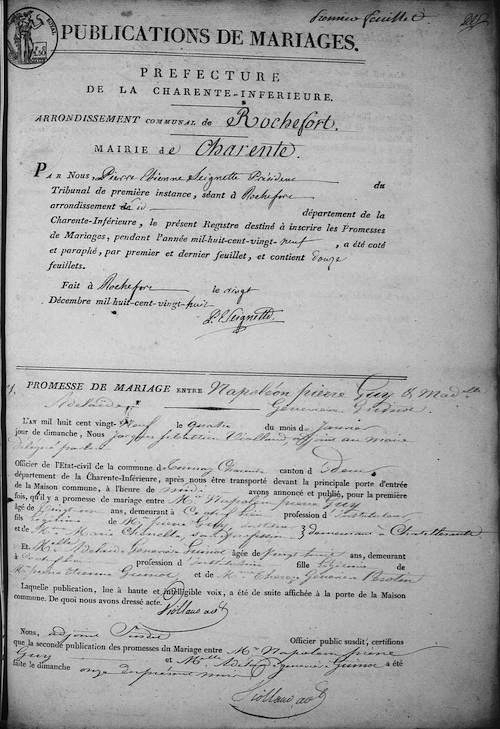 premier feuillet
PUBLICATIONS DE MARIAGES.
PREFECTURE
DE LA CHARENTE-INFERIEURE.
ARRONDISSEMENT COMMUNAL de Rochefort.
MAIRIE de Charente.
PAR NOUS, Pierre Etienne Seignette Président du
Tribunal de première instance, séant à Rochefort
arrondissement de id département de la
Charente-Inférieure, le présent Registre destiné à inscrire les Promesses
de Mariages, pendant l'année mil-huit-cent-vingt-neuf, a été coté
et paraphé, par premier et dernier feuillet, et contient douze
feuillets.
Fait à Rochefort le vingt
Décembre mil huit-cent-vingt-huit
Seignette
PROMESSE DE MARIAGE ENTRE Napoléon pierre Guy & Mad.elle
Adelaïde Genevieve Guinot
L'AN mil huit cent vingt-neuf le quatre du mois de janvier
jour de dimanche, Nous adjoint au maire
Officier de l'Etat-civil de la commune de Tonnay Charente canton d idem
département de la Charente-Inférieure, après nous être transporté devant la principale porte d'entrée
de la Maison commune, à l'heure de midi avons annoncé et publié, pour la première
fois, qu'il y a promesse de mariage entre Mr Napoléon pierre Guy
âgé de vingt ans, demeurant à profession d'instituteur
fils légitime de Mr pierre Guy
et de Marie demeurant à
Et Mlle Adelaïde Genevieve Guinot âgée de vingt ans, demeurant
à profession d'institutrice fille légitime de
Mr pierre Etienne Guinot et de Genevieve
Laquelle publication, lue à haute et intelligible voix, a été de suite affichée à la porte de la Maison
commune. De quoi nous avons dressé acte.
Nous, adjoint susdit Officier public susdit, certifions
que la seconde publication des promesses du Mariage entre Mr Napoléon pierre
Guy et Mlle Adelaïde genevieve Guinot a été
faite le dimanche onze du présent mois